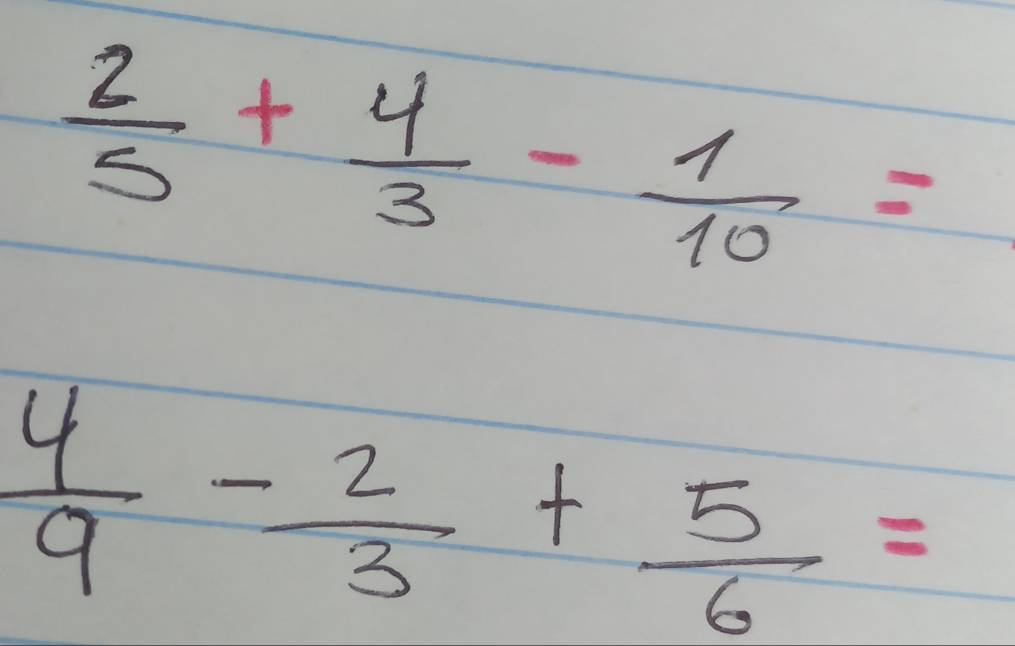 2/5 + 4/3 - 1/10 =
4/9 - 2/3 + 5/6 =